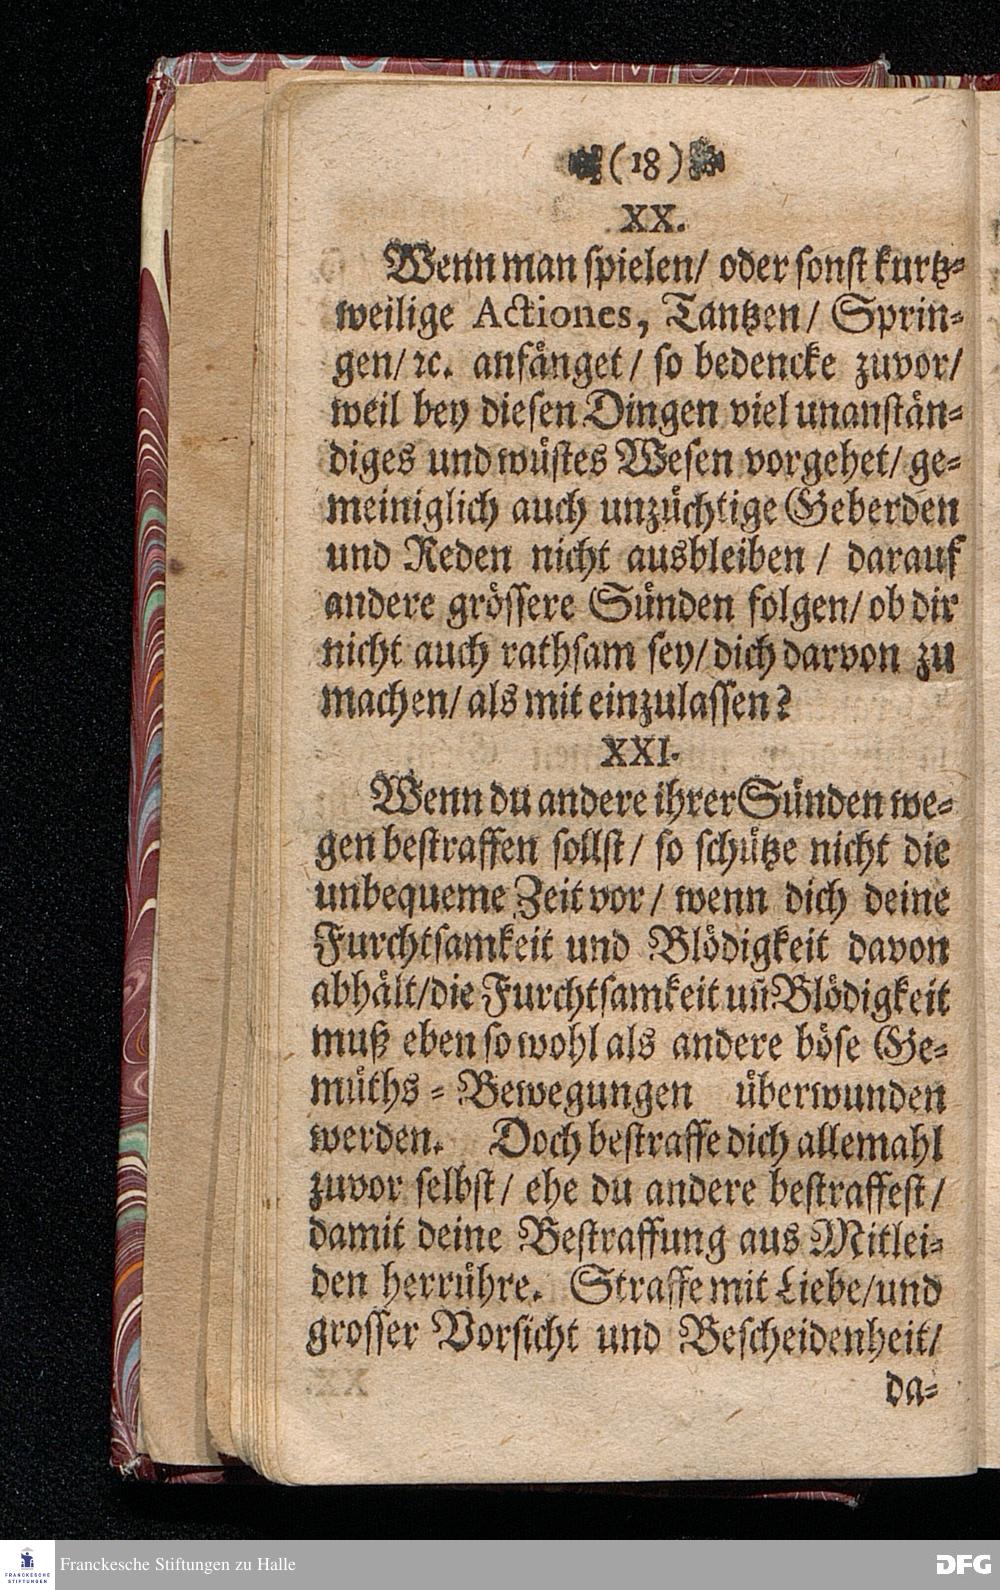 (18)
XX.
Wenn man spielen/ oder sonst kurtz-
weilige Actiones, Tantzen/ Sprin-
gen/ ꝛc. anfänget/ so bedencke zuvor/
weil bey diesen Dingen viel unanstän-
diges und wüstes Wesen vorgehet/ ge-
meiniglich auch unzüchtige Geberden
und Reden nicht ausbleiben / darauf
andere grössere Sünden folgen/ ob dir
nicht auch rathsam sey/ dich darvon zu
machen/ als mit einzulassen?
XXI.
Wenn du andere ihrer Sünden we-
gen bestraffen sollst/ so schütze nicht die
unbequeme Zeit vor/ wenn dich deine
Furchtsamkeit und Blödigkeit davon
abhält/die Furchtsamkeit un̄ Blödigkeit
muß eben so wohl als andere böse Ge-
müths-Bewegungen überwunden
werden. Doch bestraffe dich allemahl
zuvor selbst/ ehe du andere bestraffest/
damit deine Bestraffung aus Mitlei-
den herrühre. Straffe mit Liebe/und
grosser Vorsicht und Bescheidenheit/
da-
FRANCKESCHE STIFTUNGEN
Franckesche Stiftungen zu Halle
DFG